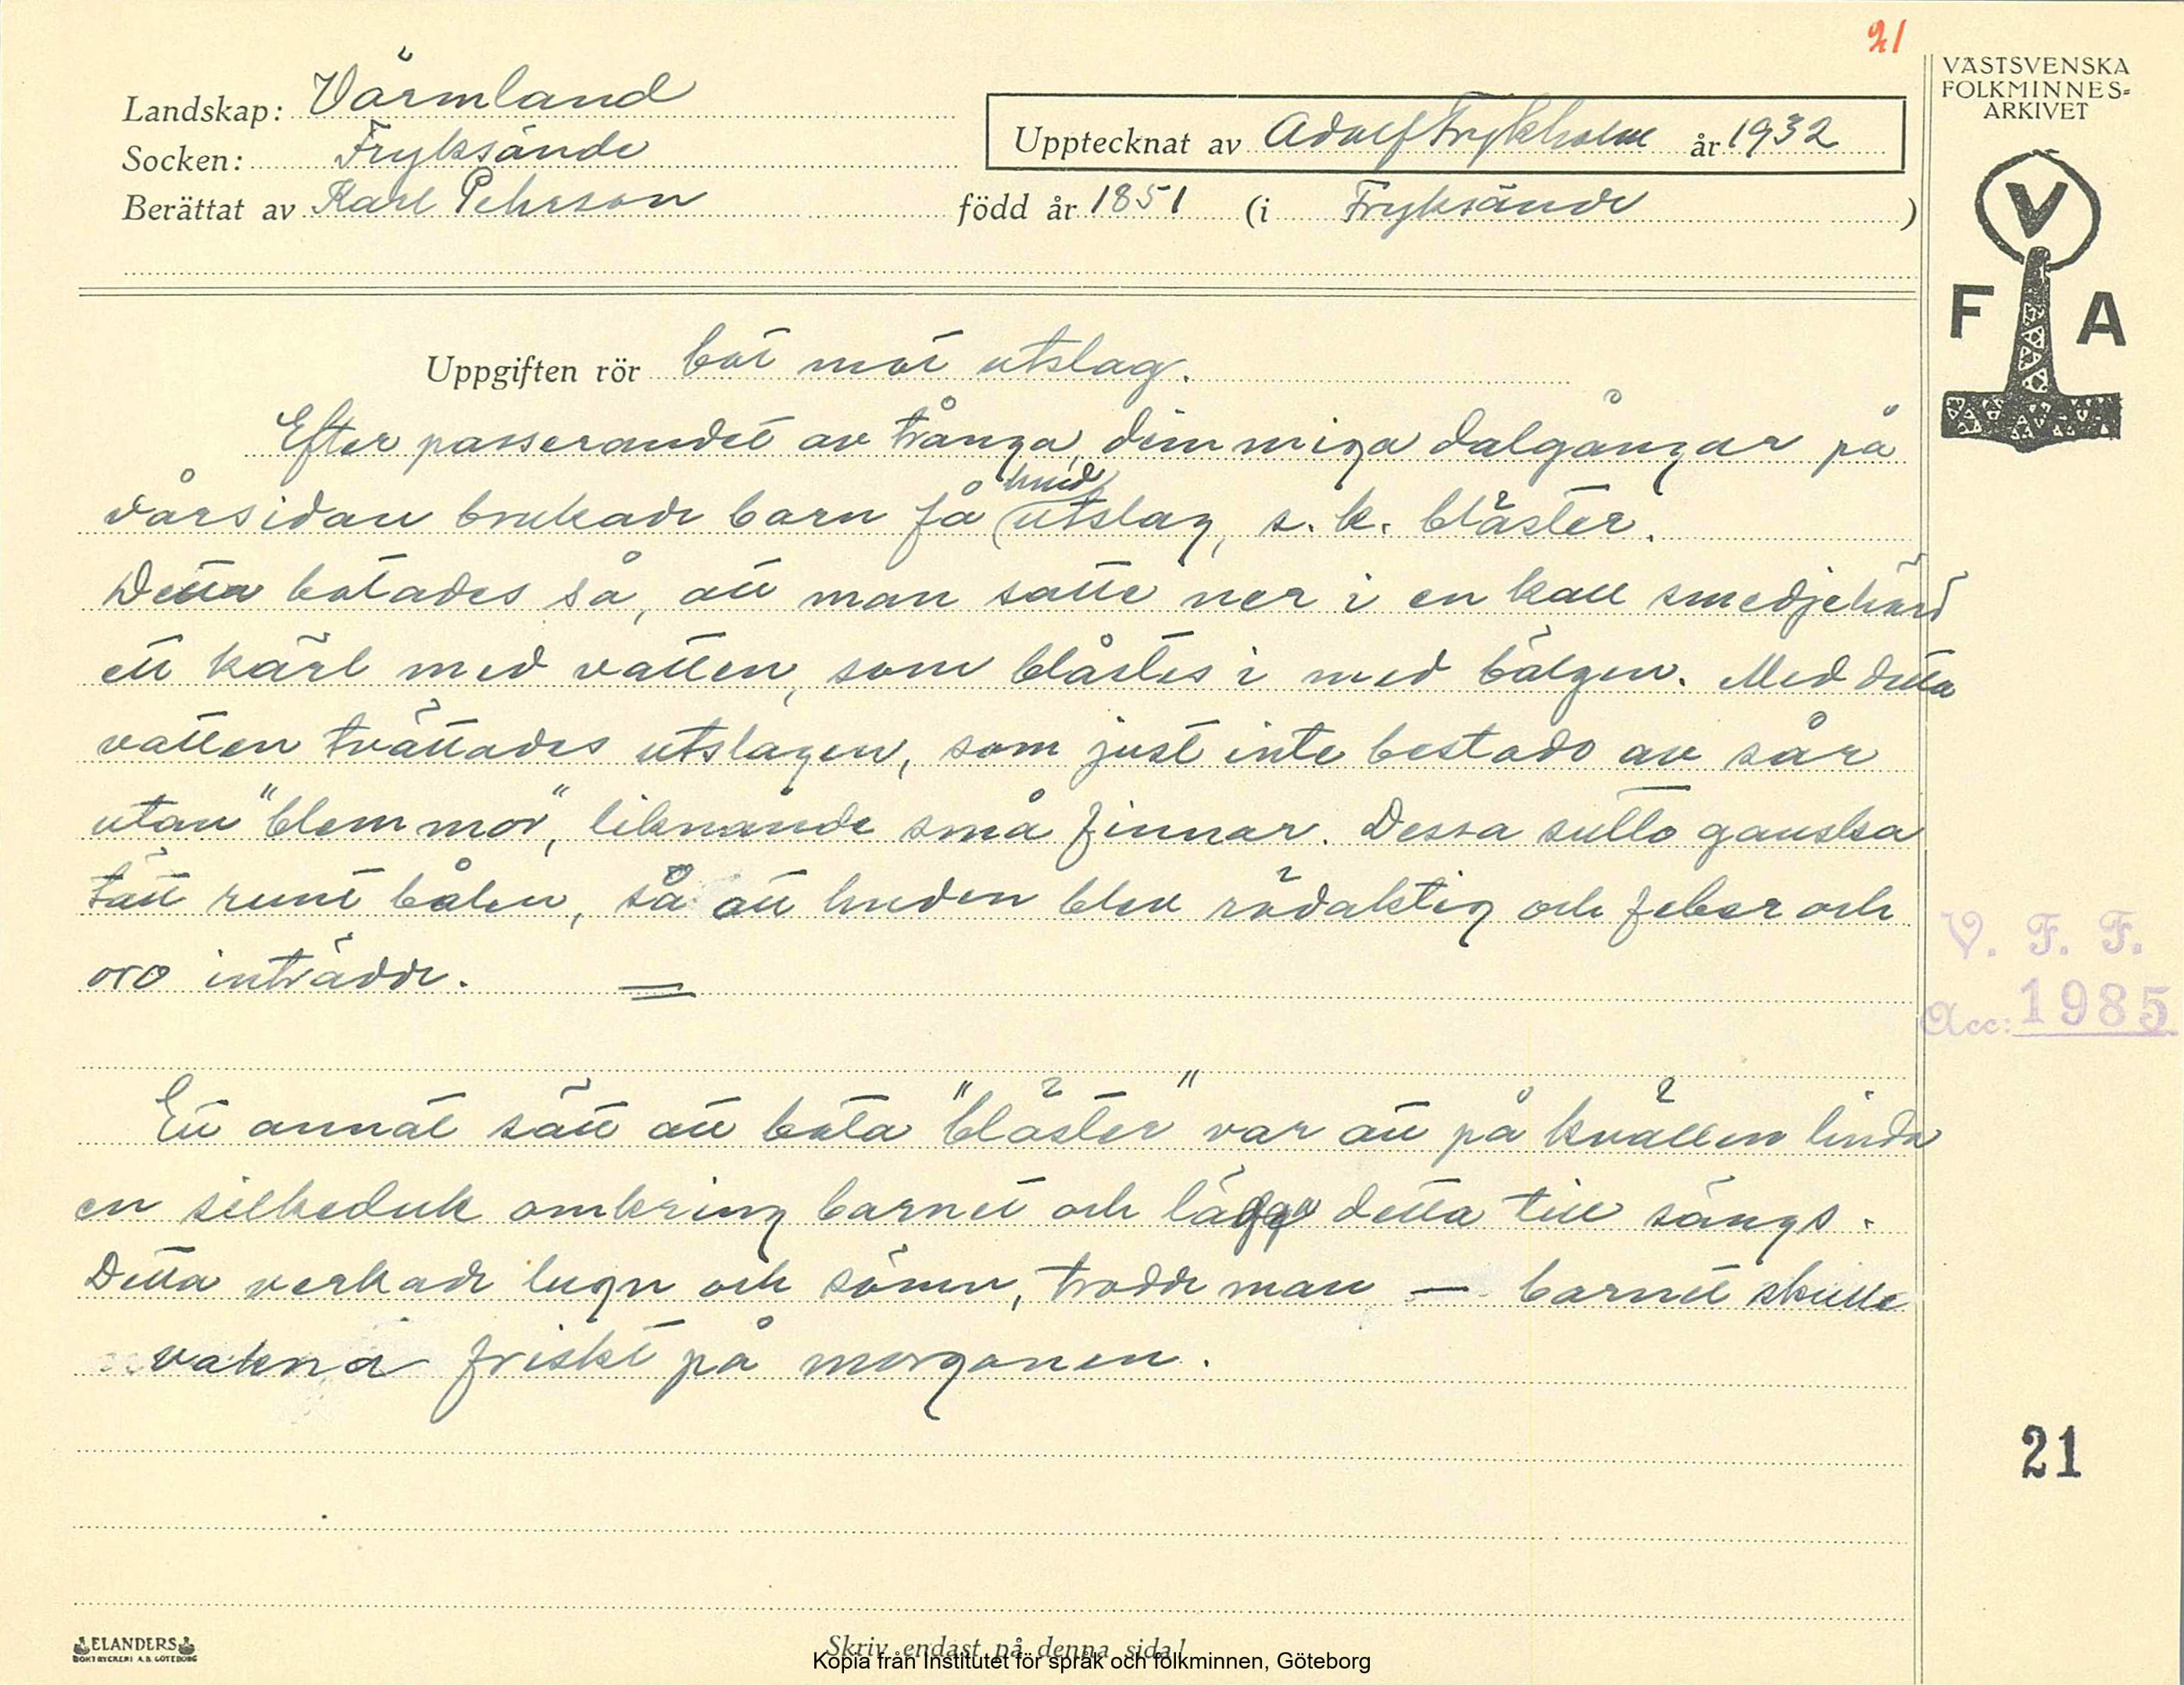 21
VÄSTSVENSKA
FOLKMINNES=
ARKIVET
Landskap: Värmland
Upptecknat av Adolf Frykholm år 1932
Socken: Fryksände
Berättat av Karl Pehrson född år 1851 (i Fryksände )
V
F A
Uppgiften rör bot mot utslag.
Efter passerandet av trånga, dimmiga dalgångar på
hud
vårsidan brukade barn få utslag, s.k. bläster.
Detta botades så, att man satte ner i en kall smedjehärd
ett kärl med vatten, som blåstes i med bälgen. Med detta
vatten tvättades utslagen, som just inte bestodo av sår
utan "blemmor", liknande små finnar. Dessa sutto ganska
tätt runt bålen, så att huden blev rödaktig och feber och
oro inträdde.
V. F. F.
Acc: 1985
Ett annat sätt att bota "bläster" var att på kvällen linda
en silkeduk omkring barnet och lägga detta till sängs.
Detta verkade lugn och sömn, trodde man — barnet skulle
vakna friskt på morgonen.
21
ELANDERS
BOKTRYCKERI A.B. GÖTEBORG
Skriv endast på denna sida!
Kopia från Institutet för språk och folkminnen, Göteborg